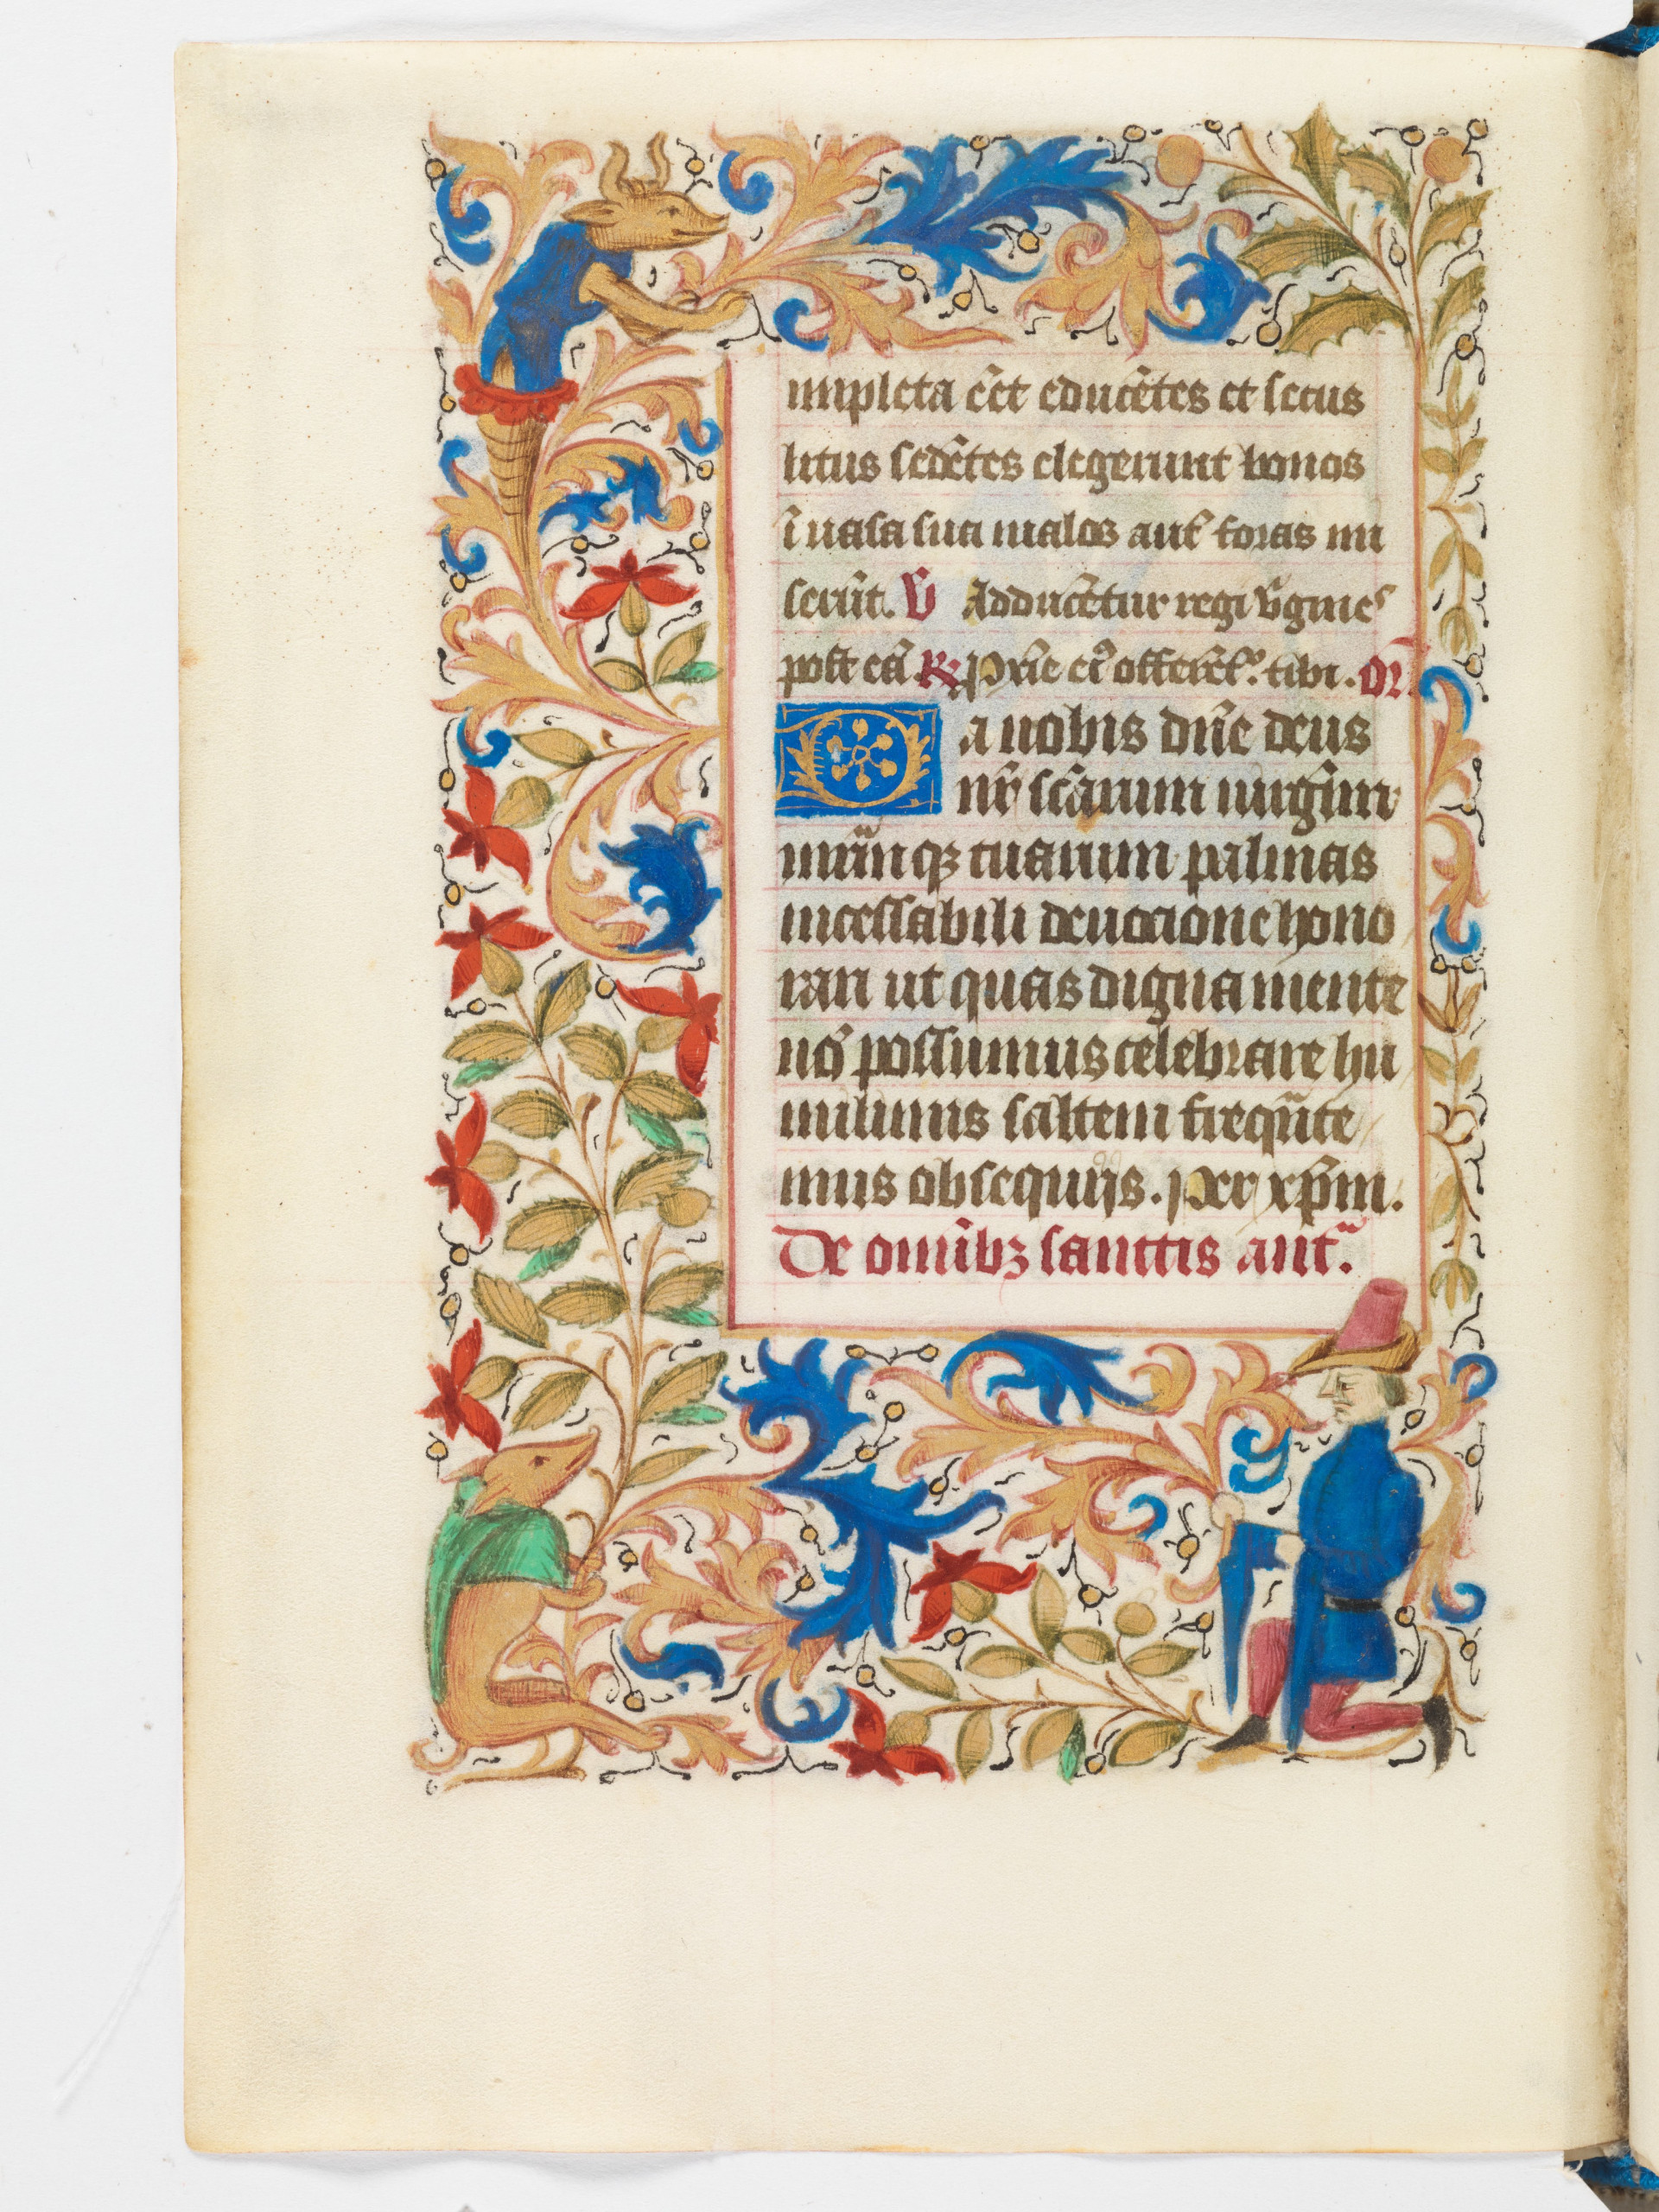 impleta eēt educētes et secus
litus sedētes elegerunt bonos
ī uasa sua malos aut̄ foras mi
serūt. V̄ Adducētur regi v̄gines
post eā ℟ Prīe eꝰ offerēt̉. tibi. Or̄
Da nobis dn̄e deus
nr̄ scārum uirgin̄
mr̄mqꝫ tuarum palmas
incessabili deuocione hono
rari ut quas digna mente
nō possumus celebrare hu
milimis saltem freqūte
mus obsequijs. Per xp̄m.
De omībꝫ sanctis ant̄.